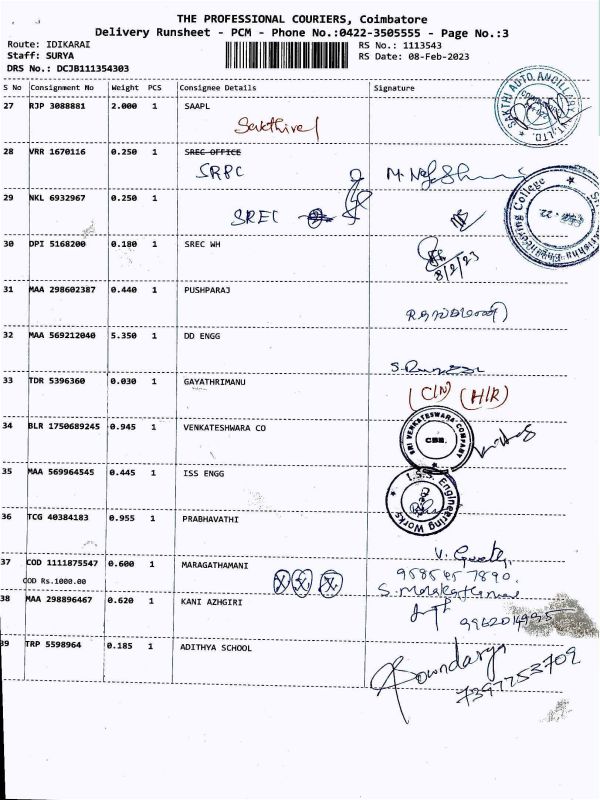 THE PROFESSIONAL COURIERS, Coimbatore
Delivery Runsheet - PCM - Phone No.:0422-3505555 - Page No.:3
Route: IDIKARAI
RS No.: 1113543
Staff: SURYA
RS Date: 08-Feb-2023
DRS No.: DCJB111354303
S No Consignment No Weight PCS Consignee Details Signature
27 RJP 3088881 2.000 1 SAAPL
Sakthivel
SAKTHI AUTO ANCILLARY PVT. LTD.
28 VRR 1670116 0.250 1 SREC OFFICE
SRPC
29 NKL 6932967 0.250 1
SREC
Engineering College
30 DPI 5168200 0.180 1 SREC WH
8/2/23
31 MAA 298602387 0.440 1 PUSHPARAJ
32 MAA 569212040 5.350 1 DD ENGG
33 TDR 5396360 0.030 1 GAYATHRIMANU
(C/N) (H/R)
34 BLR 1750689245 0.945 1 VENKATESHWARA CO
SRI VENKATESWARA COMPANY
CBE.
35 MAA 569964545 0.445 1 ISS ENGG
I.S.S. Engineering Works
36 TCG 40384183 0.955 1 PRABHAVATHI
V. Geetha
37 COD 1111875547 0.600 1 MARAGATHAMANI
COD Rs.1000.00
38 MAA 298896467 0.620 1 KANI AZHGIRI
39 TRP 5598964 0.185 1 ADITHYA SCHOOL
Soundarya
7397753709